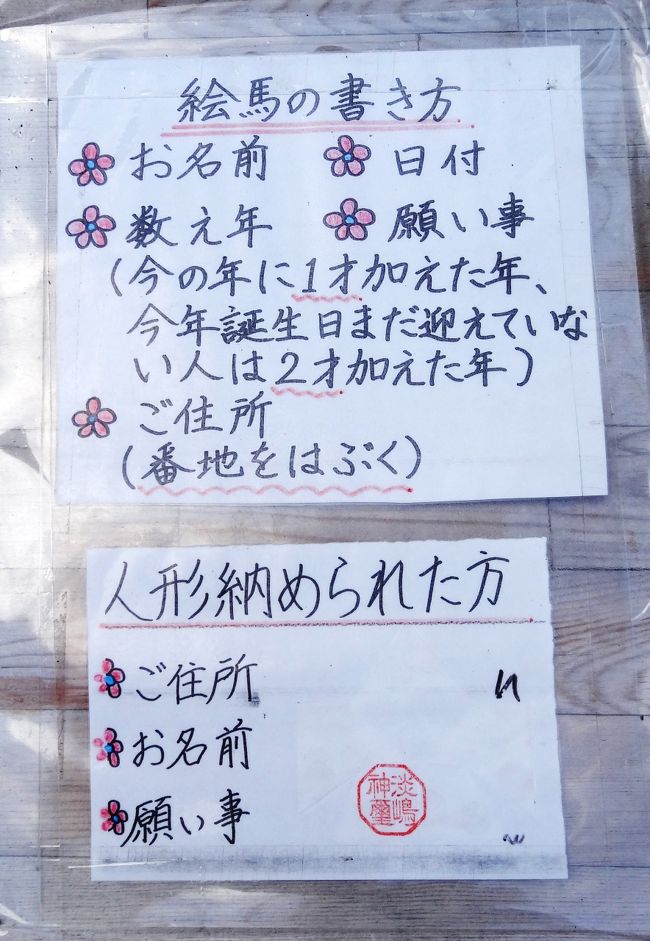 絵馬の書き方
お名前 日付
数え年 願い事
(今の年に1才加えた年、
今年誕生日まだ迎えていな
い人は2才加えた年)
ご住所
(番地をはぶく)
人形納められた方
ご住所
お名前
願い事
淡嶋神璽